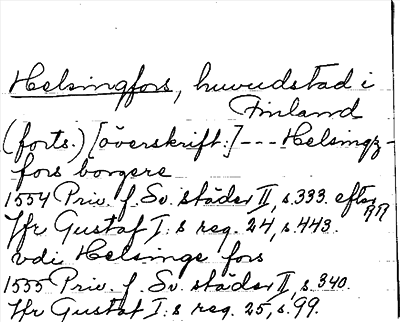 Helsingfors, huvudstad i
Finland
(forts.) [överskrift:] --- Helsingz-
fors borgere
1554 Priv. f. Sv. städer II, s. 333. efter RR
Jfr Gustaf I:s reg. 24, s. 443.
vdi Helsinge fors
1555 Priv. f. Sv. städer II, s. 340.
Jfr Gustaf I:s reg. 25, s. 99.